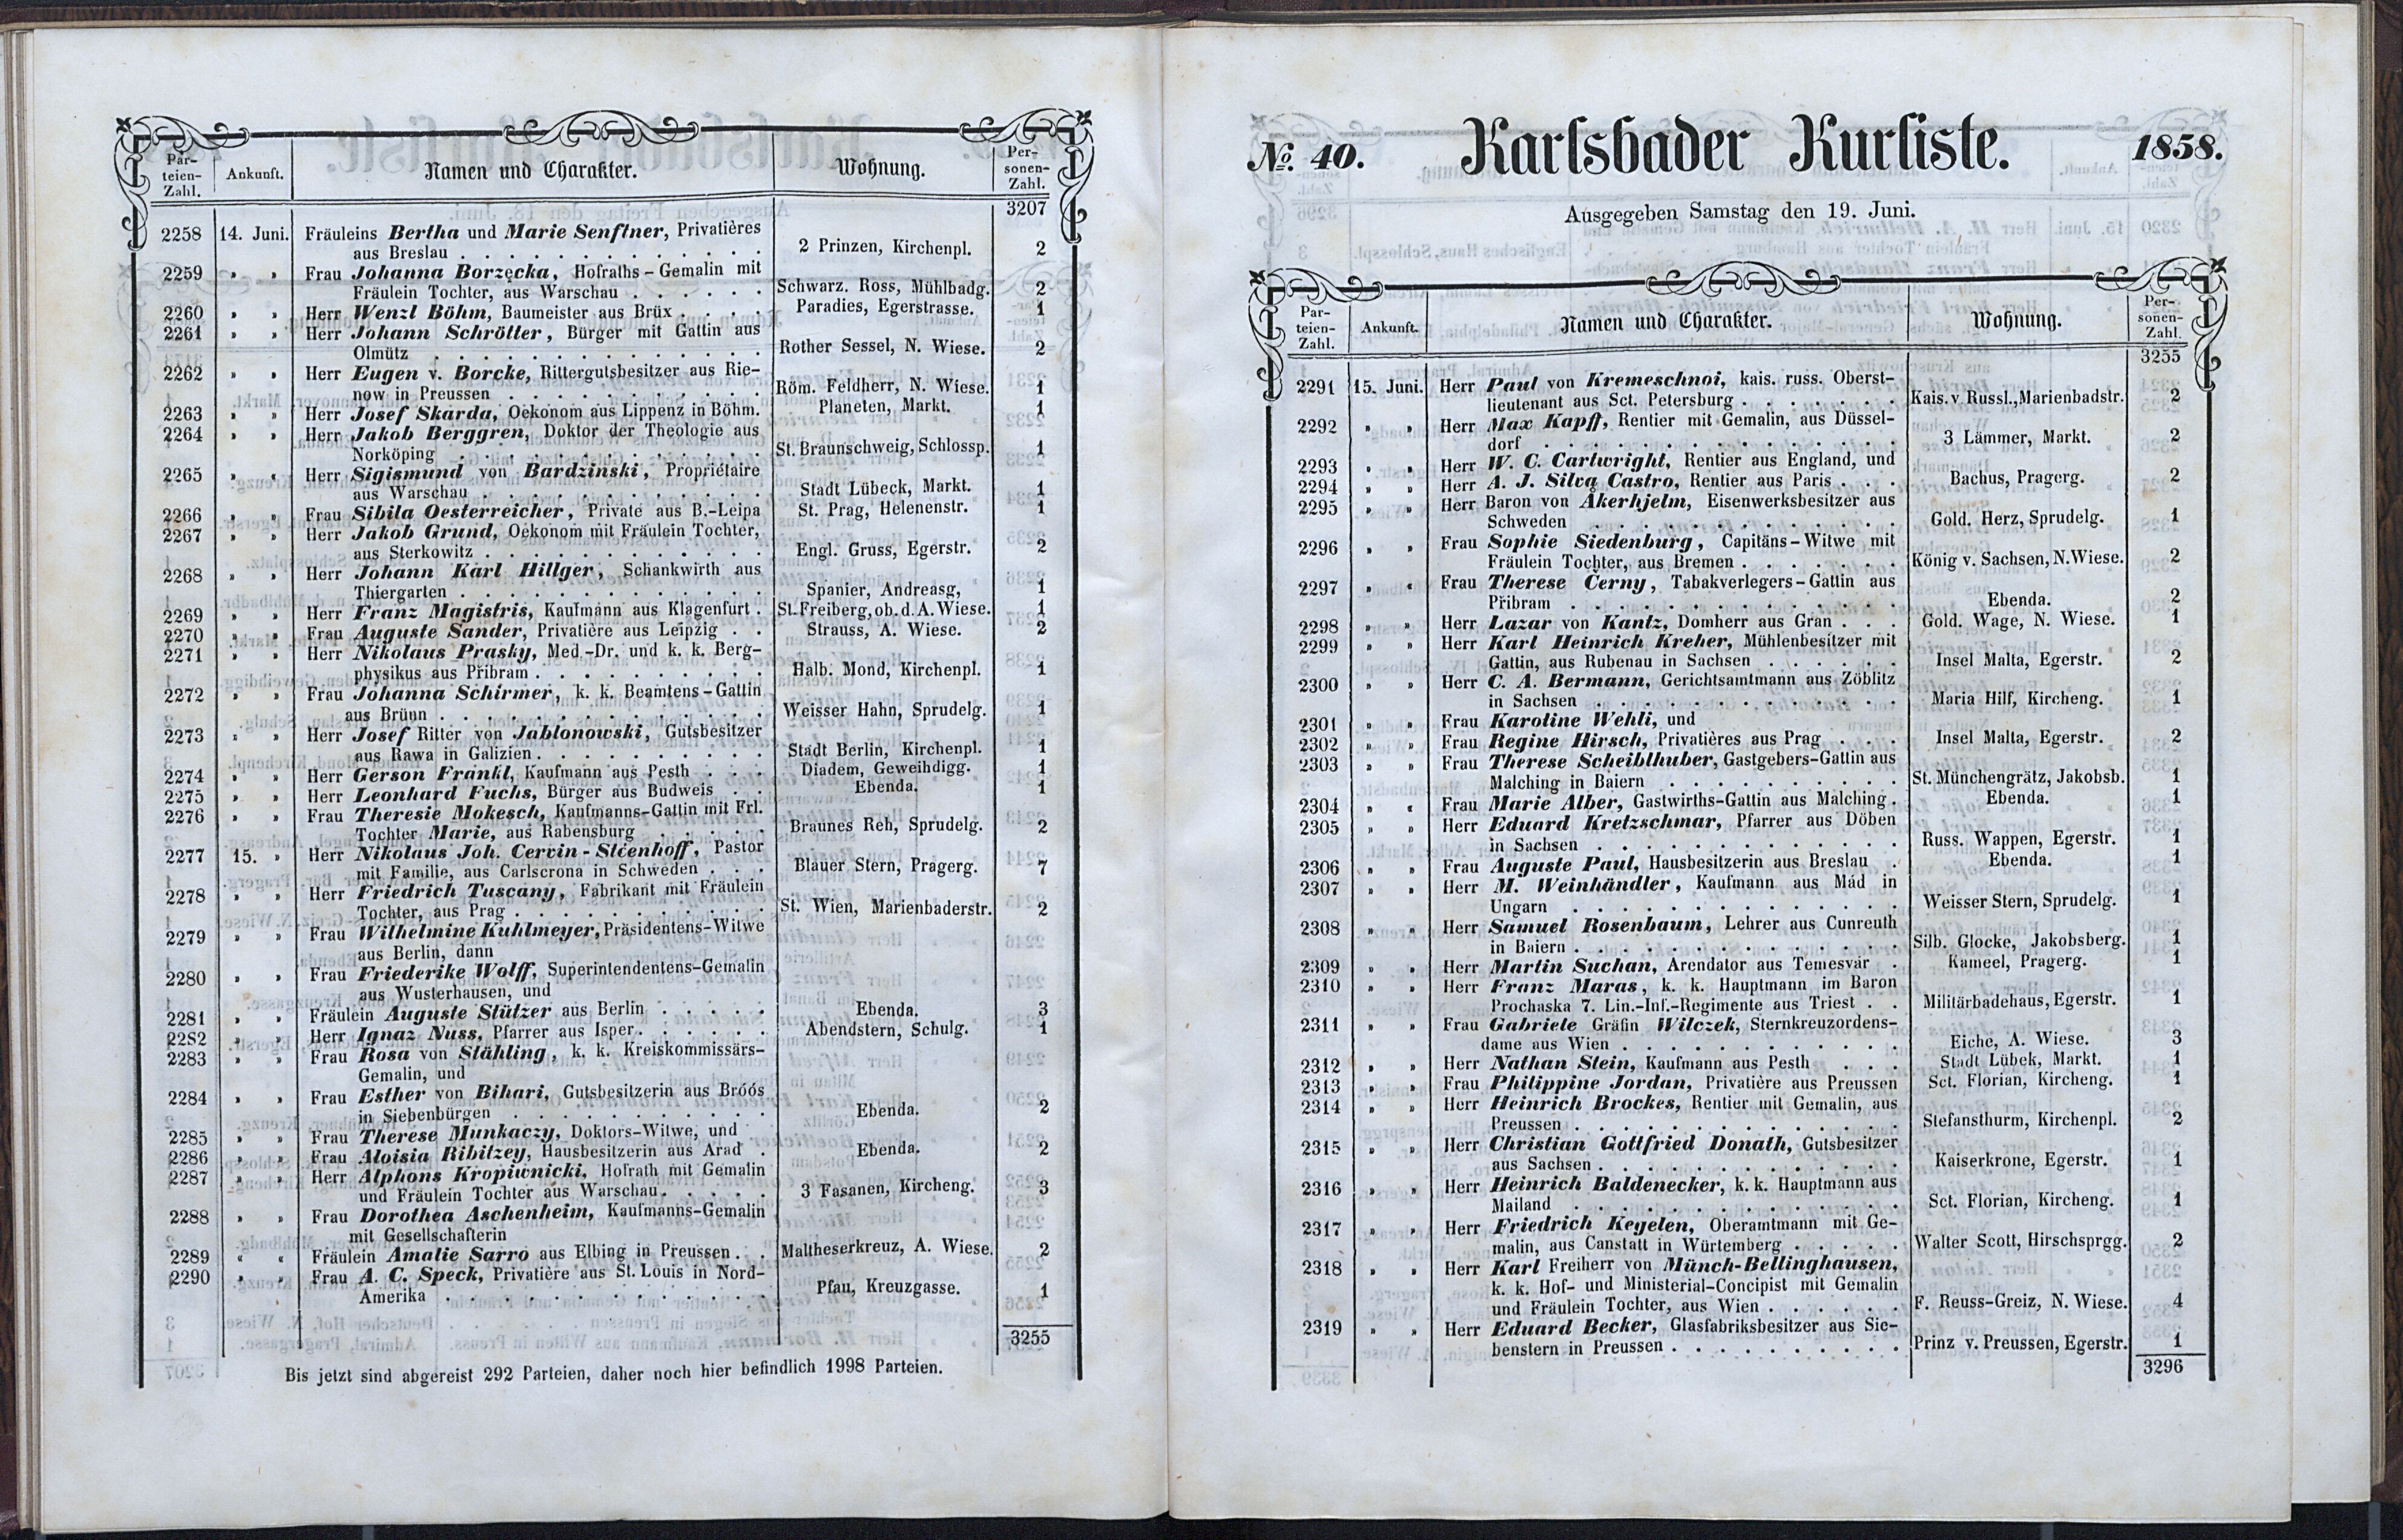 Par-
teien-
Zahl.
Ankunft.
Namen und Charakter.
Wohnung.
Per-
sonen-
Zahl.
3207
2258 14. Juni. Fräuleins Bertha und Marie Senftner, Privatières
aus Breslau . . . 2 Prinzen, Kirchenpl. 2
2259 " " Frau Johanna Borzęcka, Hofraths-Gemalin mit
Fräulein Tochter, aus Warschau . . . Schwarz. Ross, Mühlbadg. 2
2260 " " Herr Wenzl Böhm, Baumeister aus Brüx . . . Paradies, Egerstrasse. 1
2261 " " Herr Johann Schrötter, Bürger mit Gattin aus
Olmütz . . . Rother Sessel, N. Wiese. 2
2262 " " Herr Eugen v. Borcke, Rittergutsbesitzer aus Rie-
now in Preussen . . . Röm. Feldherr, N. Wiese. 1
2263 " " Herr Josef Skarda, Oekonom aus Lippenz in Böhm. Planeten, Markt. 1
2264 " " Herr Jakob Berggren, Doktor der Theologie aus
Norköping . . . St. Braunschweig, Schlossp. 1
2265 " " Herr Sigismund von Bardzinski, Propriétaire
aus Warschau . . . Stadt Lübeck, Markt. 1
2266 " " Frau Sibila Oesterreicher, Private aus B.-Leipa St. Prag, Helenenstr. 1
2267 " " Herr Jakob Grund, Oekonom mit Fräulein Tochter,
aus Sterkowitz . . . Engl. Gruss, Egerstr. 2
2268 " " Herr Johann Karl Hillger, Schankwirth aus
Thiergarten . . . Spanier, Andreasg, 1
2269 " " Herr Franz Magistris, Kaufmann aus Klagenfurt . St. Freiberg, ob. d. A. Wiese. 1
2270 " " Frau Auguste Sander, Privatière aus Leipzig . . Strauss, A. Wiese. 2
2271 " " Herr Nikolaus Prasky, Med.-Dr. und k. k. Berg-
physikus aus Přibram . . . Halb. Mond, Kirchenpl. 1
2272 " " Frau Johanna Schirmer, k. k. Beamtens-Gattin
aus Brünn . . . Weisser Hahn, Sprudelg. 1
2273 " " Herr Josef Ritter von Jablonowski, Gutsbesitzer
aus Rawa in Galizien . . . Stadt Berlin, Kirchenpl. 1
2274 " " Herr Gerson Frankl, Kaufmann aus Pesth . . . Diadem, Geweihdigg. 1
2275 " " Herr Leonhard Fuchs, Bürger aus Budweis . . Ebenda. 1
2276 " " Frau Theresie Mokesch, Kaufmanns-Gattin mit Frl.
Tochter Marie, aus Rabensburg . . . Braunes Reh, Sprudelg. 2
2277 15. " Herr Nikolaus Joh. Cervin-Steenhoff, Pastor
mit Familie, aus Carlscrona in Schweden . . . Blauer Stern, Pragerg. 7
2278 " " Herr Friedrich Tuscany, Fabrikant mit Fräulein
Tochter, aus Prag . . . St. Wien, Marienbaderstr. 2
2279 " " Frau Wilhelmine Kuhlmeyer, Präsidentens-Witwe
aus Berlin, dann
2280 " " Frau Friederike Wolff, Superintendentens-Gemalin
aus Wusterhausen, und
2281 " " Fräulein Auguste Stützer aus Berlin . . . Ebenda. 3
2282 " " Herr Ignaz Nuss, Pfarrer aus Isper . . . Abendstern, Schulg. 1
2283 " " Frau Rosa von Stähling, k. k. Kreiskommissärs-
Gemalin, und
2284 " " Frau Esther von Bihari, Gutsbesitzerin aus Bróós
in Siebenbürgen . . . Ebenda. 2
2285 " " Frau Therese Munkaczy, Doktors-Witwe, und
2286 " " Frau Aloisia Ribitzey, Hausbesitzerin aus Arad . Ebenda. 2
2287 " " Herr Alphons Kropiwnicki, Hofrath mit Gemalin
und Fräulein Tochter aus Warschau . . . 3 Fasanen, Kircheng. 3
2288 " " Frau Dorothea Aschenheim, Kaufmanns-Gemalin
mit Gesellschafterin
2289 " " Fräulein Amalie Sarro aus Elbing in Preussen . . Maltheserkreuz, A. Wiese. 2
2290 " " Frau A. C. Speck, Privatière aus St. Louis in Nord-
Amerika . . . Pfau, Kreuzgasse. 1
3255
Bis jetzt sind abgereist 292 Parteien, daher noch hier befindlich 1998 Parteien.
No. 40. Karlsbader Kurliste. 1858.
Ausgegeben Samstag den 19. Juni.
Par-
teien-
Zahl.
Ankunft.
Namen und Charakter.
Wohnung.
Per-
sonen-
Zahl.
3255
2291 15. Juni. Herr Paul von Kremeschnoi, kais. russ. Oberst-
lieutenant aus Sct. Petersburg . . . Kais. v. Russl., Marienbadstr. 2
2292 " " Herr Max Kapff, Rentier mit Gemalin, aus Düssel-
dorf . . . 3 Lämmer, Markt. 2
2293 " " Herr W. C. Cartwright, Rentier aus England, und
2294 " " Herr A. J. Silva Castro, Rentier aus Paris . . . Bachus, Pragerg. 2
2295 " " Herr Baron von Åkerhjelm, Eisenwerksbesitzer aus
Schweden . . . Gold. Herz, Sprudelg. 1
2296 " " Frau Sophie Siedenburg, Capitäns-Witwe mit
Fräulein Tochter, aus Bremen . . . König v. Sachsen, N. Wiese. 2
2297 " " Frau Therese Černy, Tabakverlegers-Gattin aus
Přibram . . . Ebenda. 2
2298 " " Herr Lazar von Kantz, Domherr aus Gran . . . Gold. Wage, N. Wiese. 1
2299 " " Herr Karl Heinrich Kreher, Mühlenbesitzer mit
Gattin, aus Rubenau in Sachsen . . . Insel Malta, Egerstr. 2
2300 " " Herr C. A. Bermann, Gerichtsamtmann aus Zöblitz
in Sachsen . . . Maria Hilf, Kircheng. 1
2301 " " Frau Karoline Wehli, und
2302 " " Frau Regine Hirsch, Privatières aus Prag . . . Insel Malta, Egerstr. 2
2303 " " Frau Therese Scheiblhuber, Gastgebers-Gattin aus
Malching in Baiern . . . St. Münchengrätz, Jakobsb. 1
2304 " " Frau Marie Alber, Gastwirths-Gattin aus Malching. Ebenda. 1
2305 " " Herr Eduard Kretzschmar, Pfarrer aus Döben
in Sachsen . . . Russ. Wappen, Egerstr. 1
2306 " " Frau Auguste Paul, Hausbesitzerin aus Breslau . Ebenda. 1
2307 " " Herr M. Weinhändler, Kaufmann aus Mád in
Ungarn . . . Weisser Stern, Sprudelg. 1
2308 " " Herr Samuel Rosenbaum, Lehrer aus Cunreuth
in Baiern . . . Silb. Glocke, Jakobsberg. 1
2309 " " Herr Martin Suchan, Arendator aus Temesvár . Kameel, Pragerg. 1
2310 " " Herr Franz Maras, k. k. Hauptmann im Baron
Prochaska 7. Lin.-Inf.-Regimente aus Triest . . Militärbadehaus, Egerstr. 1
2311 " " Frau Gabriele Gräfin Wilczek, Sternkreuzordens-
dame aus Wien . . . Eiche, A. Wiese. 3
2312 " " Herr Nathan Stein, Kaufmann aus Pesth . . . Stadt Lübek, Markt. 1
2313 " " Frau Philippine Jordan, Privatière aus Preussen Sct. Florian, Kircheng. 1
2314 " " Herr Heinrich Brockes, Rentier mit Gemalin, aus
Preussen . . . Stefansthurm, Kirchenpl. 2
2315 " " Herr Christian Gottfried Donath, Gutsbesitzer
aus Sachsen . . . Kaiserkrone, Egerstr. 1
2316 " " Herr Heinrich Baldenecker, k. k. Hauptmann aus
Mailand . . . Sct. Florian, Kircheng. 1
2317 " " Herr Friedrich Kegelen, Oberamtmann mit Ge-
malin, aus Canstatt in Würtemberg . . . Walter Scott, Hirschsprgg. 2
2318 " " Herr Karl Freiherr von Münch-Bellinghausen,
k. k. Hof- und Ministerial-Concipist mit Gemalin
und Fräulein Tochter, aus Wien . . . F. Reuss-Greiz, N. Wiese. 4
2319 " " Herr Eduard Becker, Glasfabriksbesitzer aus Sie-
benstern in Preussen . . . Prinz v. Preussen, Egerstr. 1
3296